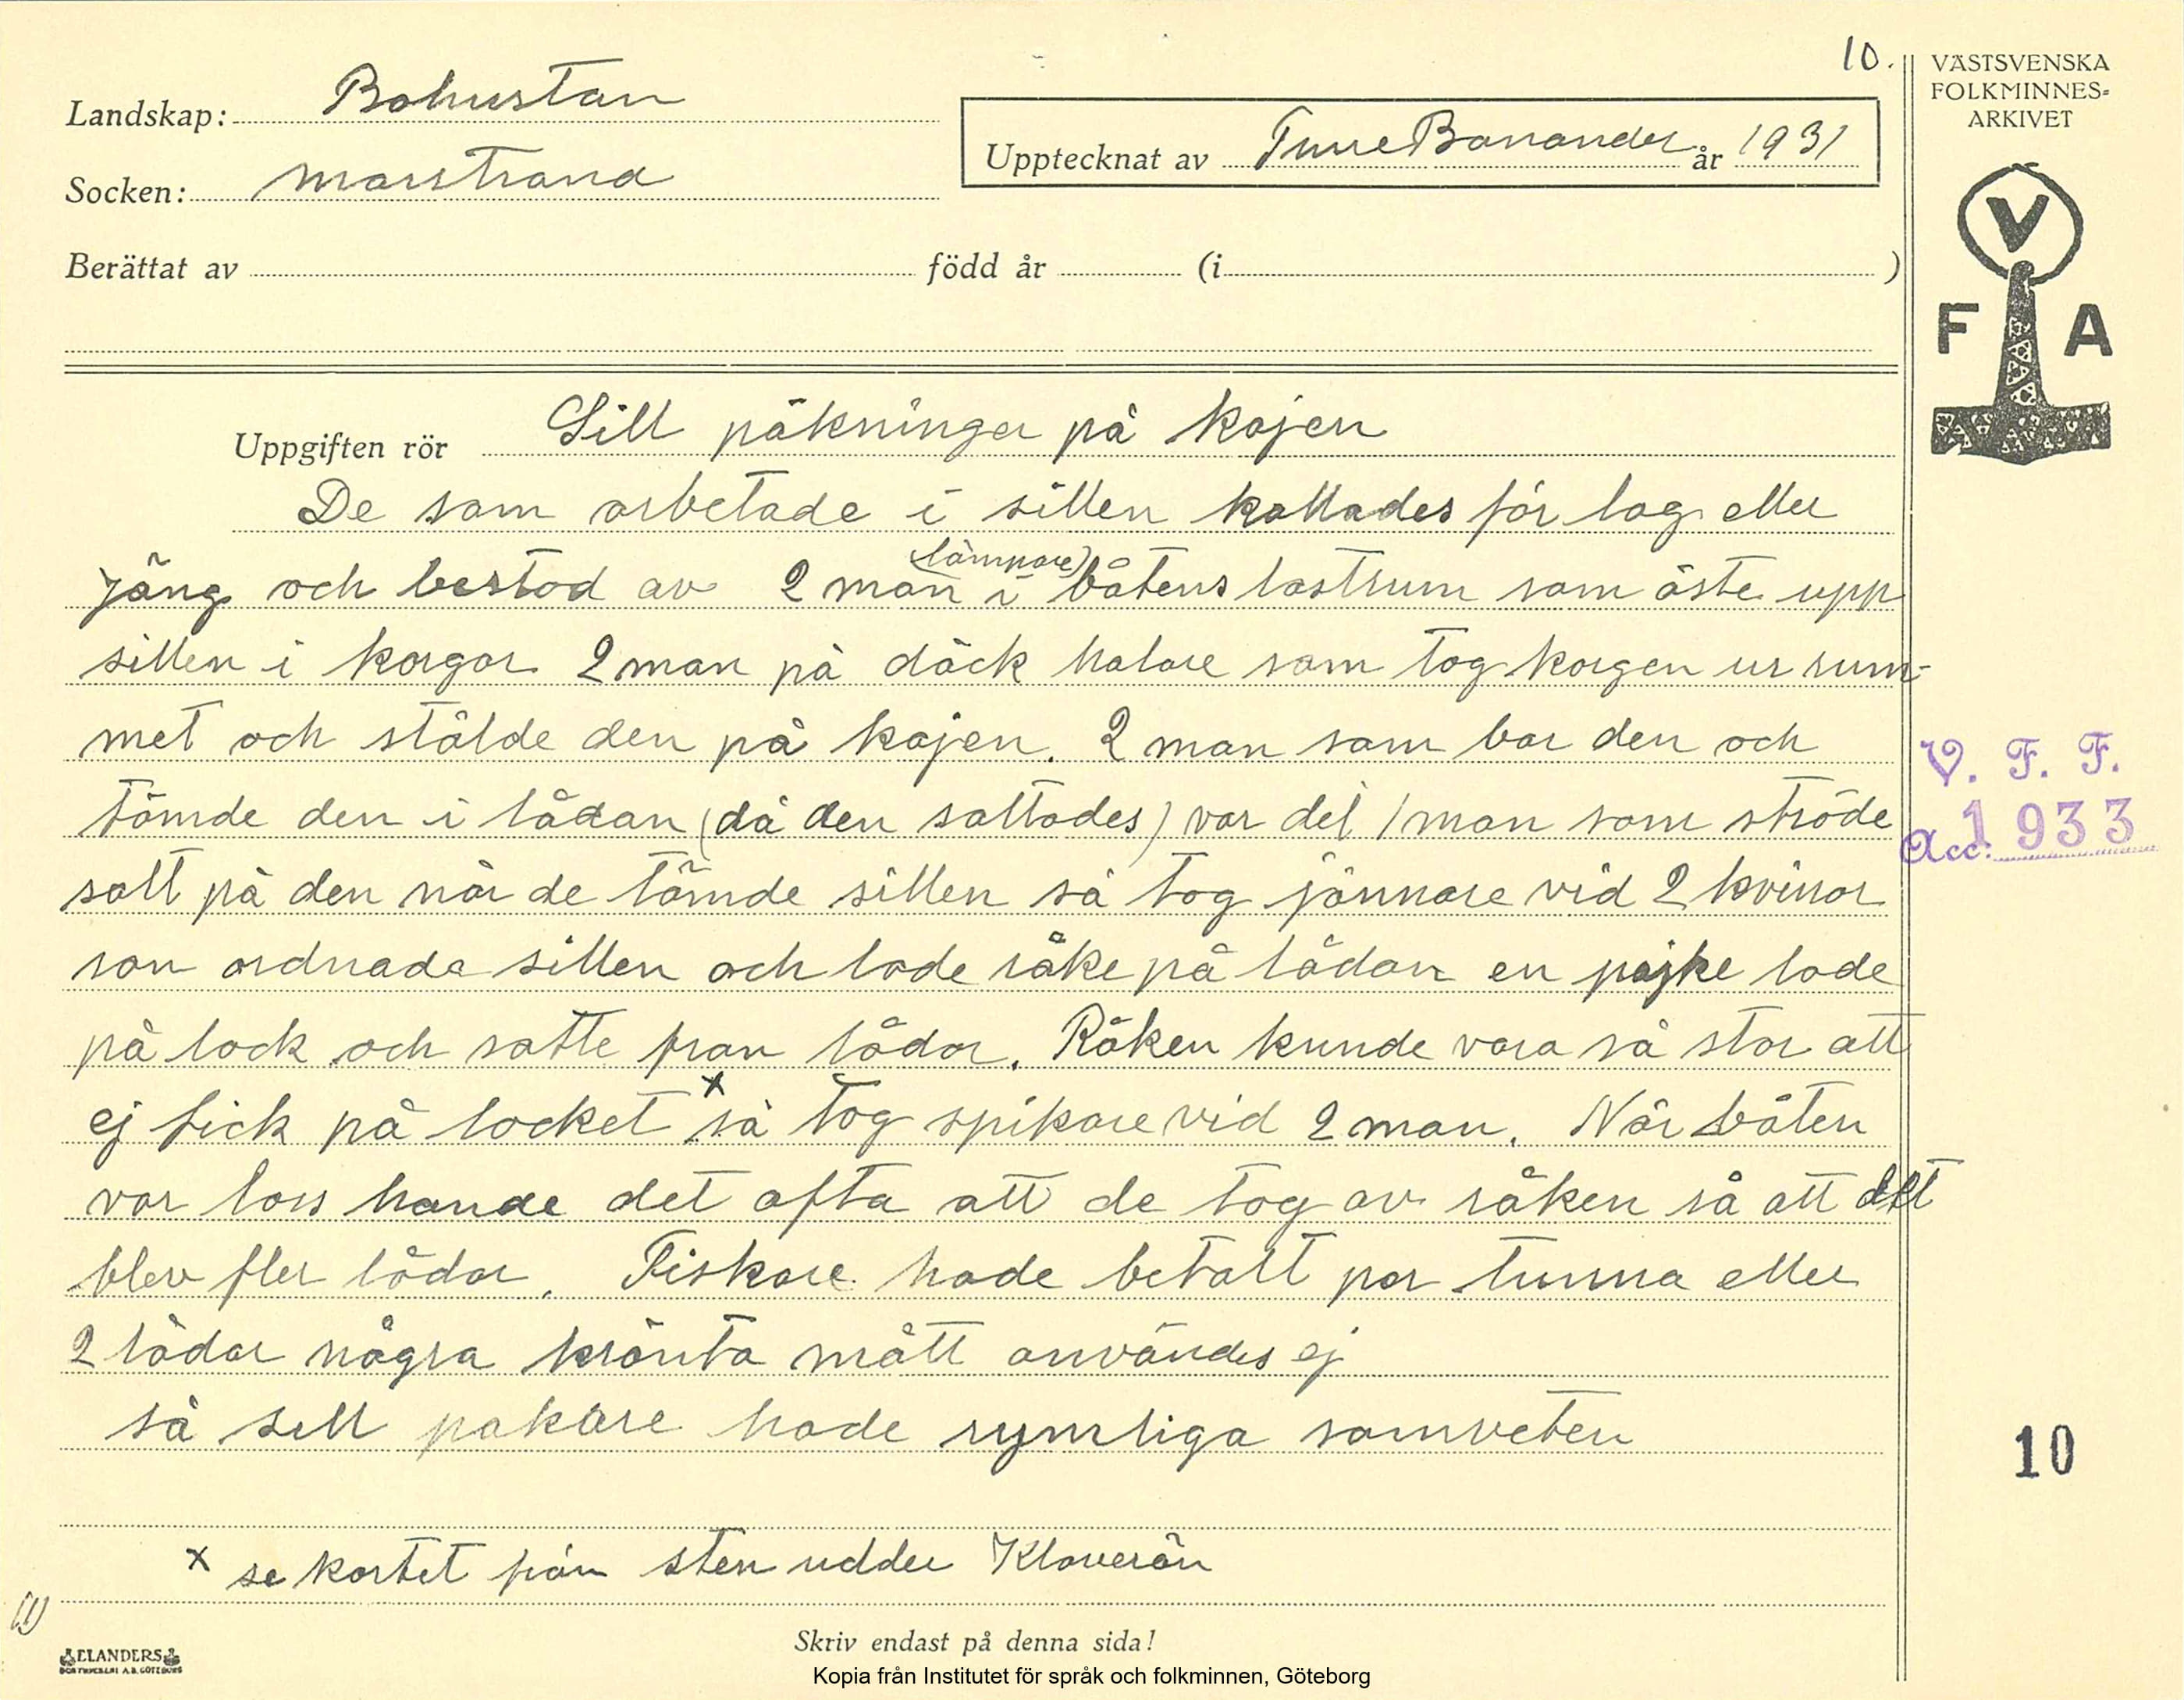 10.
VÄSTSVENSKA
FOLKMINNES-
ARKIVET
Landskap: Bohustan
Upptecknat av Ture Banander år 1931
Socken: Marstrand
Berättat av född år (i )
V
F A
Uppgiften rör Sill päkninger på kajen
De som arbetade i sillen kallades för lag eller
jäng och bestod av 2 man (lämpare) i båtens lastrum som öste upp
sillen i korgar 2 man på däck halare som tog korgen ur rum-
met och stälde den på kajen. 2 man som bar den och
tömde den i lådan (då den saltades) var det 1 man som ströde
salt på den när de tömde sillen så tog jämnare vid 2 kvinor
som ordnade sillen och lade råke på lådan en pojke lade
på lock och satte fram lådor. Råken kunde vara så stor att
ej fick på locket x så tog spikare vid 2 man. När båten
var loss hande det ofta att de tog av råken så att det
blev fler lådor. Fiskare hade betalt per tunna eller
2 lådar några krönta mått användes ej
så sill pakare hade rymliga samveten
x se kortet från sten udden Klaverön
V. F. F.
Acc. 1933
10
Skriv endast på denna sida!
ELANDERS
BOKTRYCKERI A.B. GÖTEBORG
Kopia från Institutet för språk och folkminnen, Göteborg